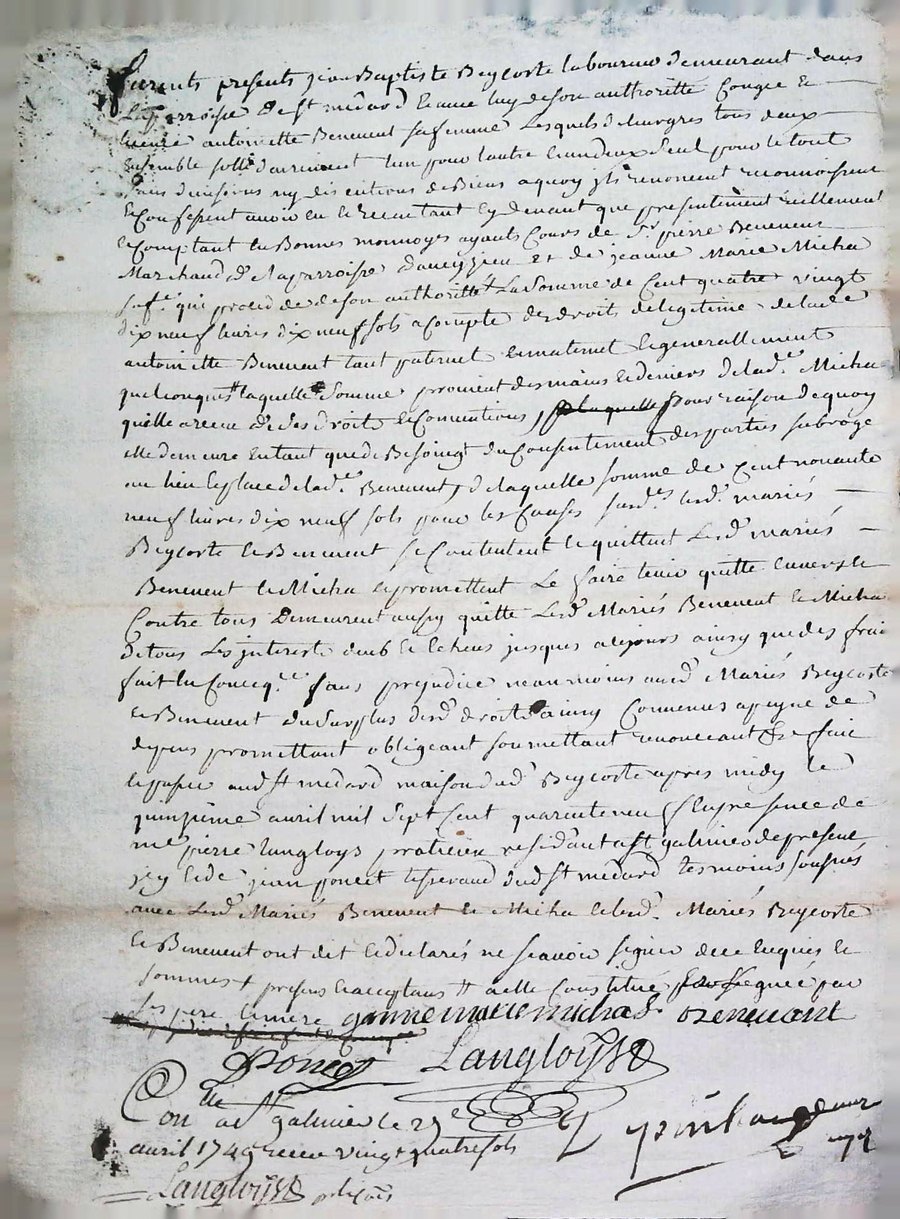 furents presents jean Baptiste Beycoste laboureur demeurant dans
la parroisse de st medard et avec luy de son authoritté Congée et
licence antoinette Benevent sa femme Lesquels de leur gres tous deux
Ensemble sollidairement l'un pour l'autre l'un d'eux seul pour le tout
sans divisions ny discutions de Biens a quoy jls renoncent reconnoissent
et Confessent avoir eu et receu tant cy devant que presentement réellement
et Comptant en Bonnes monnoyes ayants Cours de Sr pierre Benevent
Marchand de la parroisse d'aveyzieu et de jeanne Marie Micha
sa fe. qui procede de son authoritté La Somme de Cent quatre vingt
dix neuf livres dix neuf sols a Compte des droits de legitime de lade
antoinette Benevent tant paternel et maternel et generallement
quelconques laquelle Somme provient des mains et deniers de lade. Micha
qu'elle a receu de ses droits et Conventions pour raison de quoy
elle demeure en tant que de Besoingt du Consentement des parties subrogé
au lieu et place de lade. Benevent, de laquelle somme de Cent nonante
neuf livres dix neuf sols pour les Causes susdes. lesd. mariés
Beycoste et Benevent se Contentent et quittent Lesd. mariés
Benevent et Micha et promettent Le faire tenir quitte envers et
Contre tous Demeurent aussy quitte Lesd. Mariés Benevent et Micha
de tous Les jnterests deub et écheus jusques a ce jours ainsy que des frais
fait en Conceqce. sans prejudice neanmoins auxd. Mariés Beycoste
et Benevent du surplus desd. droits ainsy Convenus a peyne de
depens promettant obligeant soumettant renonceant &c fait
et passé aud. st medard maison dud. Beycoste apres midy le
quinzieme avril mil sept Cent quarente neuf En presence de
me pierre Langloys praticien residant a st galmier de present
jcy et de jean poncet tisserand dud. st medard tesmoins sousnés
avec Lesd. Mariés Benevent et Micha et lesd. Mariés Beycoste
et Benevent ont dit et declarés ne sçavoir signer de ce enquis et
sommes + presens et acceptans # a elle Constitué par
ses pere et mere ganne marie micha Benevant
Poncet Langloijs
Con a st galmier le 29e
avril 1749 receu vingt quatre sols
Langloijs